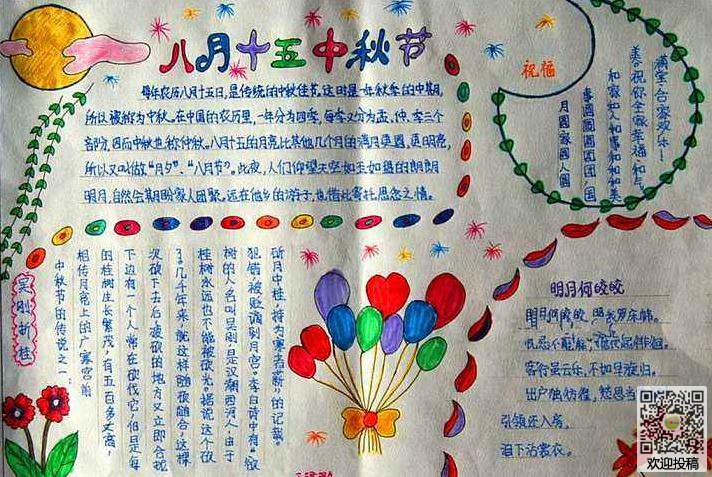 八月十五中秋节
每年农历八月十五日,是传统的中秋佳节。这时是一年秋季的中期,
所以被称为中秋。在中国的农历里,一年分为四季,每季又分为孟、仲、季三个
部分,因而中秋也称仲秋。八月十五的月亮比其他几个月的满月更圆,更明亮,
所以又叫做“月夕”、“八月节”。此夜,人们仰望天空如玉如盘的朗朗
明月,自然会期盼家人团聚。远在他乡的游子,也借此寄托
思念之情。
祝福
满堂合家欢乐!
美。祝你全家幸福和气,
和家和人和事和和和美
事圆圆圆团团,国
月圆家圆人圆
吴刚折桂
中秋节的传说之一:
相传月亮上的广寒宫前
的桂树生长繁茂,有五百多丈高,
下边有一个人常在砍伐它,但是每
次砍下去后,被砍的地方又立即合拢
了。几千年来,就这样随砍随合,这棵
桂树永远也不能被砍光。据说这个砍
树的人名叫吴刚,是汉朝西河人,由于
犯错被贬谪到月宫。李白诗中有“欲
斫月中桂,持为寒者薪”的记载。
明月何皎皎
明月何皎皎,照我罗床帏。
忧愁不能寐,揽衣起徘徊。
客行虽云乐,不如早旋归。
出户独彷徨,愁思当
引领还入房,
泪下沾裳衣。
欢迎投稿